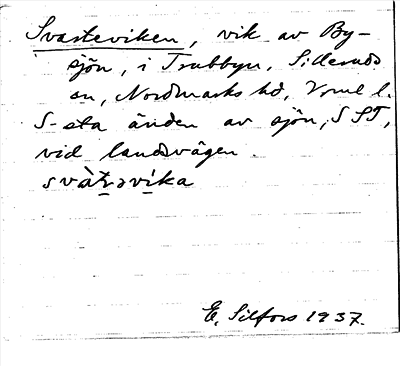 Svarteviken, vik av By-
sjön, i Trubbyn, Silleruds
sn, Nordmarks hd, Vrml l.
S-sta änden av sjön, S ST,
vid landsvägen.
svàṭəvi̱ka
E. Silfors 1937.